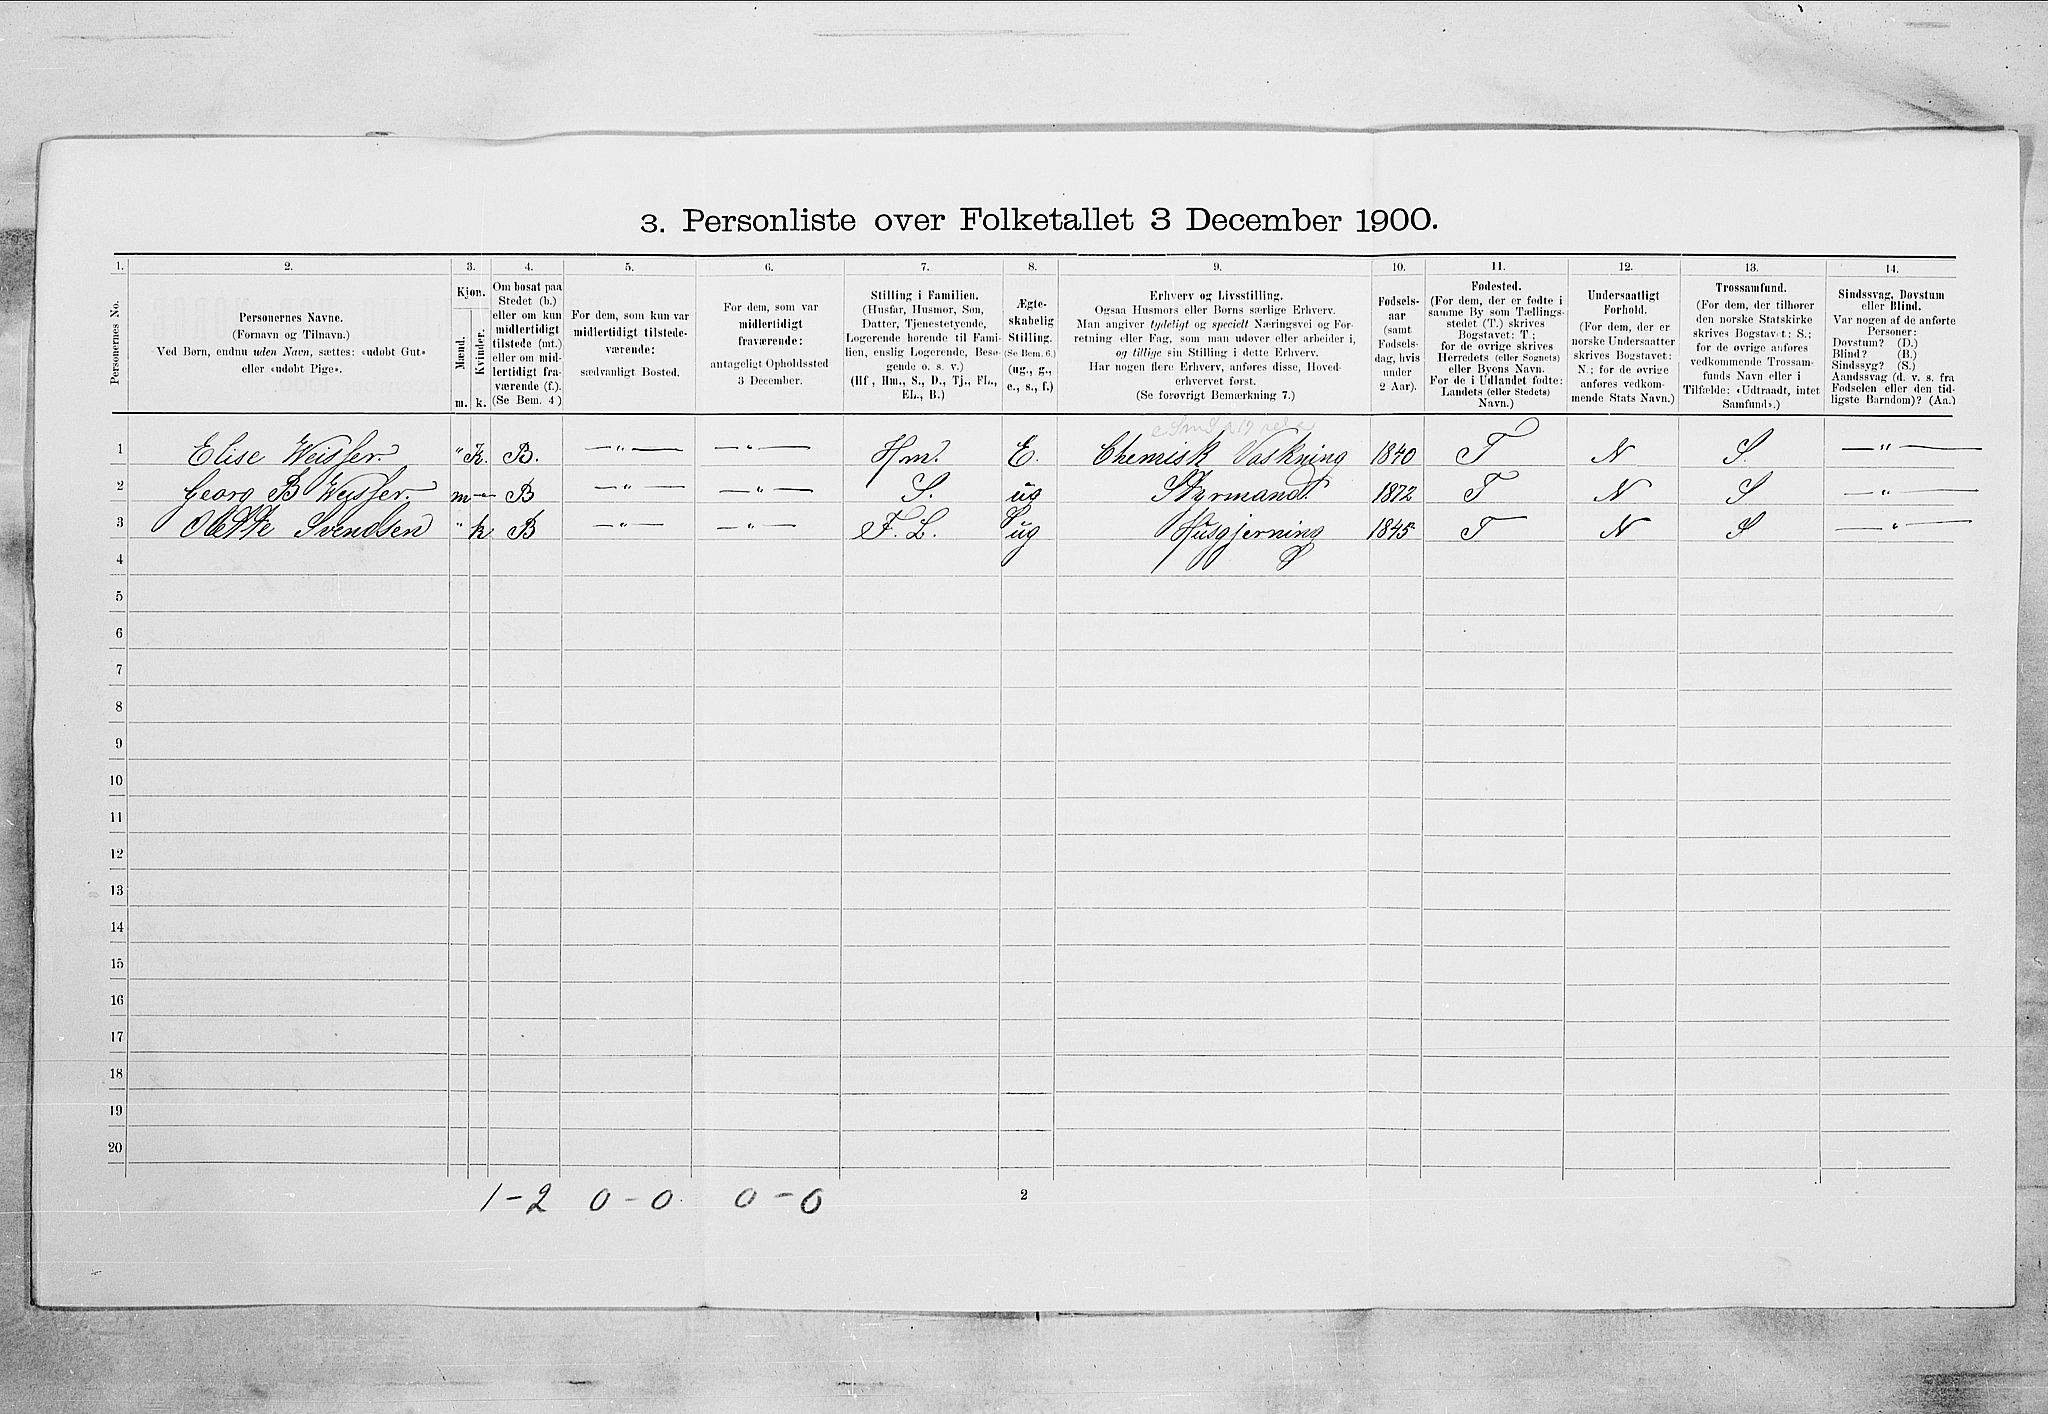 3. Personliste over Folketallet 3 December 1900.
1. 2. 3. 4. 5. 6. 7. 8. 9. 10. 11. 12. 13. 14.
Personernes No.
Personernes Navne.
(Fornavn og Tilnavn.)
Ved Børn, endnu uden Navn, sættes: «udøbt Gut»
eller «udøbt Pige».
Kjøn.
Mænd. Kvinder.
m. k.
Om bosat paa
Stedet (b.)
eller om kun
midlertidigt
tilstede (mt.)
eller om mid-
lertidigt fra-
værende (f.).
(Se Bem. 4)
For dem, som kun var
midlertidigt tilstede-
værende:
sædvanligt Bosted.
For dem, som var
midlertidigt
fraværende:
antageligt Opholdssted
3 December.
Stilling i Familien.
(Husfar, Husmor, Søn,
Datter, Tjenestetyende,
Logerende hørende til Fami-
lien, enslig Logerende, Besø-
gende o. s. v.)
(Hf, Hm., S., D., Tj., FL.,
EL., B.)
Ægte-
skabelig
Stilling.
(Se Bem. 6.)
(ug., g.,
e., s., f.)
Erhverv og Livsstilling.
Ogsaa Husmors eller Børns særlige Erhverv.
Man angiver tydeligt og specielt Næringsvei og For-
retning eller Fag, som man udøver eller arbeider i,
og tillige sin Stilling i dette Erhverv.
Har nogen flere Erhverv, anføres disse, Hoved-
erhvervet først.
(Se forøvrigt Bemærkning 7.)
Fødsels-
aar
(samt
Fødsels-
dag, hvis
under
2 Aar).
Fødested.
(For dem, der er fødte i
samme By som Tællings-
stedet (T.) skrives
Bogstavet: T;
for de øvrige skrives
Herredets (eller Sognets)
eller Byens Navn.
For de i Udlandet fødte:
Landets (eller Stedets)
Navn.)
Undersaatligt
Forhold.
(For dem, der er
norske Undersaatter
skrives Bogstavet:
N.; for de øvrige
anføres vedkom-
mende Stats Navn.)
Trossamfund.
(For dem, der tilhører
den norske Statskirke
skrives Bogstavet: S.;
for de øvrige anføres
vedkommende Trossam-
funds Navn eller i
Tilfælde: «Udtraadt, intet
Samfund».)
Sindssvag, Døvstum
eller Blind.
Var nogen af de anførte
Personer:
Døvstum? (D.)
Blind? (B.)
Sindssyg? (S.)
Aandssvag (d. v. s. fra
Fødselen eller den tid-
ligste Barndom)? (Aa.)
1 Elise Weisser. " K. B. —"— —"— Hm. E. Chemisk Vaskning 1840 T N S. —"—
2 Georg B Weisser. m — B —"— —"— S. ug Styrmand 1872 T N S —"—
3 Mette Svendsen " k B —"— —"— F. L. ug Husgjerning 1845 T N S —"—
4
5
6
7
8
9
10
11
12
13
14
15
16
17
18
19
20
1-2 0-0 0-0
2